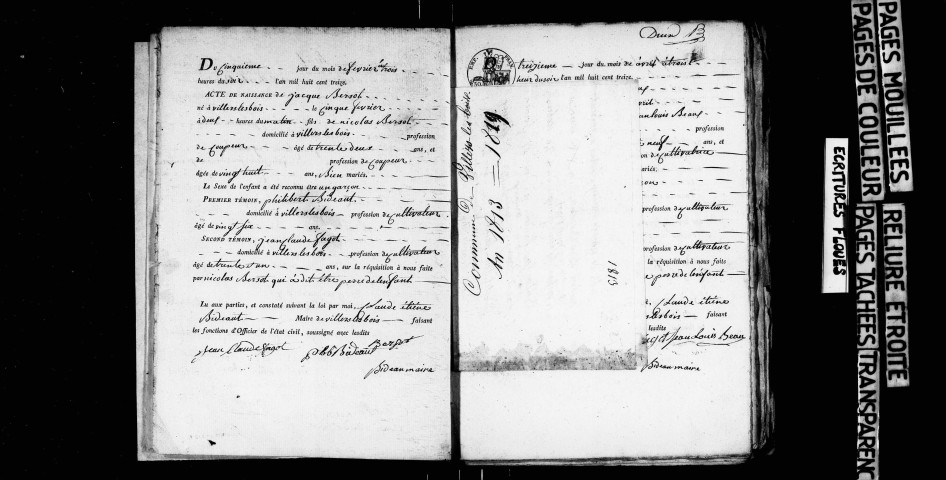 Du cinquieme jour du mois de fevrier trois
heures du soir l'an mil huit cent treize.
ACTE DE NAISSANCE de jacque Bersot
né à villerslesbois le cinque fevrier
à deux heures du matin fils de nicolas Bersot
domicilié à villerslesbois profession
de coupeur âgé de trente deux ans, et
de profession de coupeur
âgée de vingt huit ans, Bien mariés.
Le Sexe de l'enfant a été reconnu être un garçon
PREMIER TÉMOIN, philibert Bideaut
domicilié à villerslesbois profession de cultivateur
âgé de vingt six ans.
SECOND TÉMOIN, jean claude fagot
domicilié à villerslesbois profession de cultivateur
âgé de trente et un ans, sur la réquisition à nous faite
par nicolas Bersot qui à dit être perre de lenfant
Lu aux parties, et constaté suivant la loi par moi, Claude étiene
Bideaut Maire de villerslesbois faisant
les fonctions d'Officier de l'état civil, soussigné avec lesdits
jean Claude fagot Bersot
phb Bideaut
Bideau maire
treizieme jour du mois de avril à trois
heur du soir l'an mil huit cent treize.
avril
jean louis Beau
profession
neuf ans, et
on de cultivatrice
mariés.
profession de cultivateur
profession de cultivateur
la réquisition à nous faite
perre de lenfant
Claude étiene
faisant
lesdits
jean Louis Beau
Bideau maire
Commune D. Villers les bois.
An 1813 = 1819
1813
PAGES MOUILLEES
PAGES DE COULEUR
ECRITURES FLOUES
RELIURE ETROITE
PAGES TACHEES
TRANSPARENC